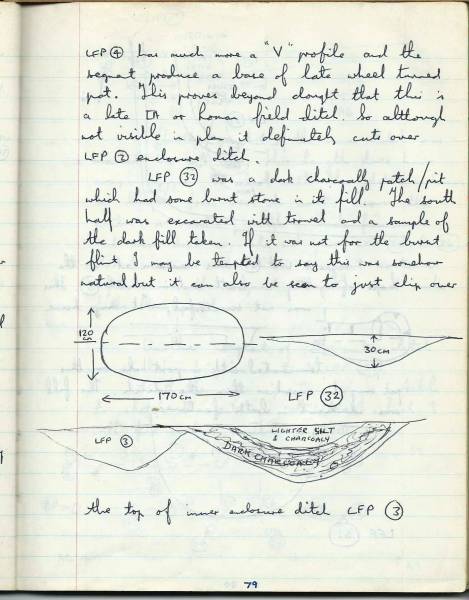 LFP ④ has much more a "V" profile and the
segment produce a base of late wheel turned
pot. This proves beyond dought that this is
a late IA or roman field ditch. So although
not visible in plan it definitely cuts over
LFP ② enclosure ditch.
LFP ㉜ was a dark charcoally patch/pit
which had some burnt stone in its fill. The south
half was excavated with trowel and a sample of
the dark fill taken. If it was not for the burnt
flint I may be tempted to say this was somehow
natural but it can also be seen to just clip over
120
cm
30cm
170cm
LFP ㉜
LFP ③
LIGHTER SILT
& CHARCOALY
DARK CHARCOALY
the top of inner enclosure ditch LFP ③
79